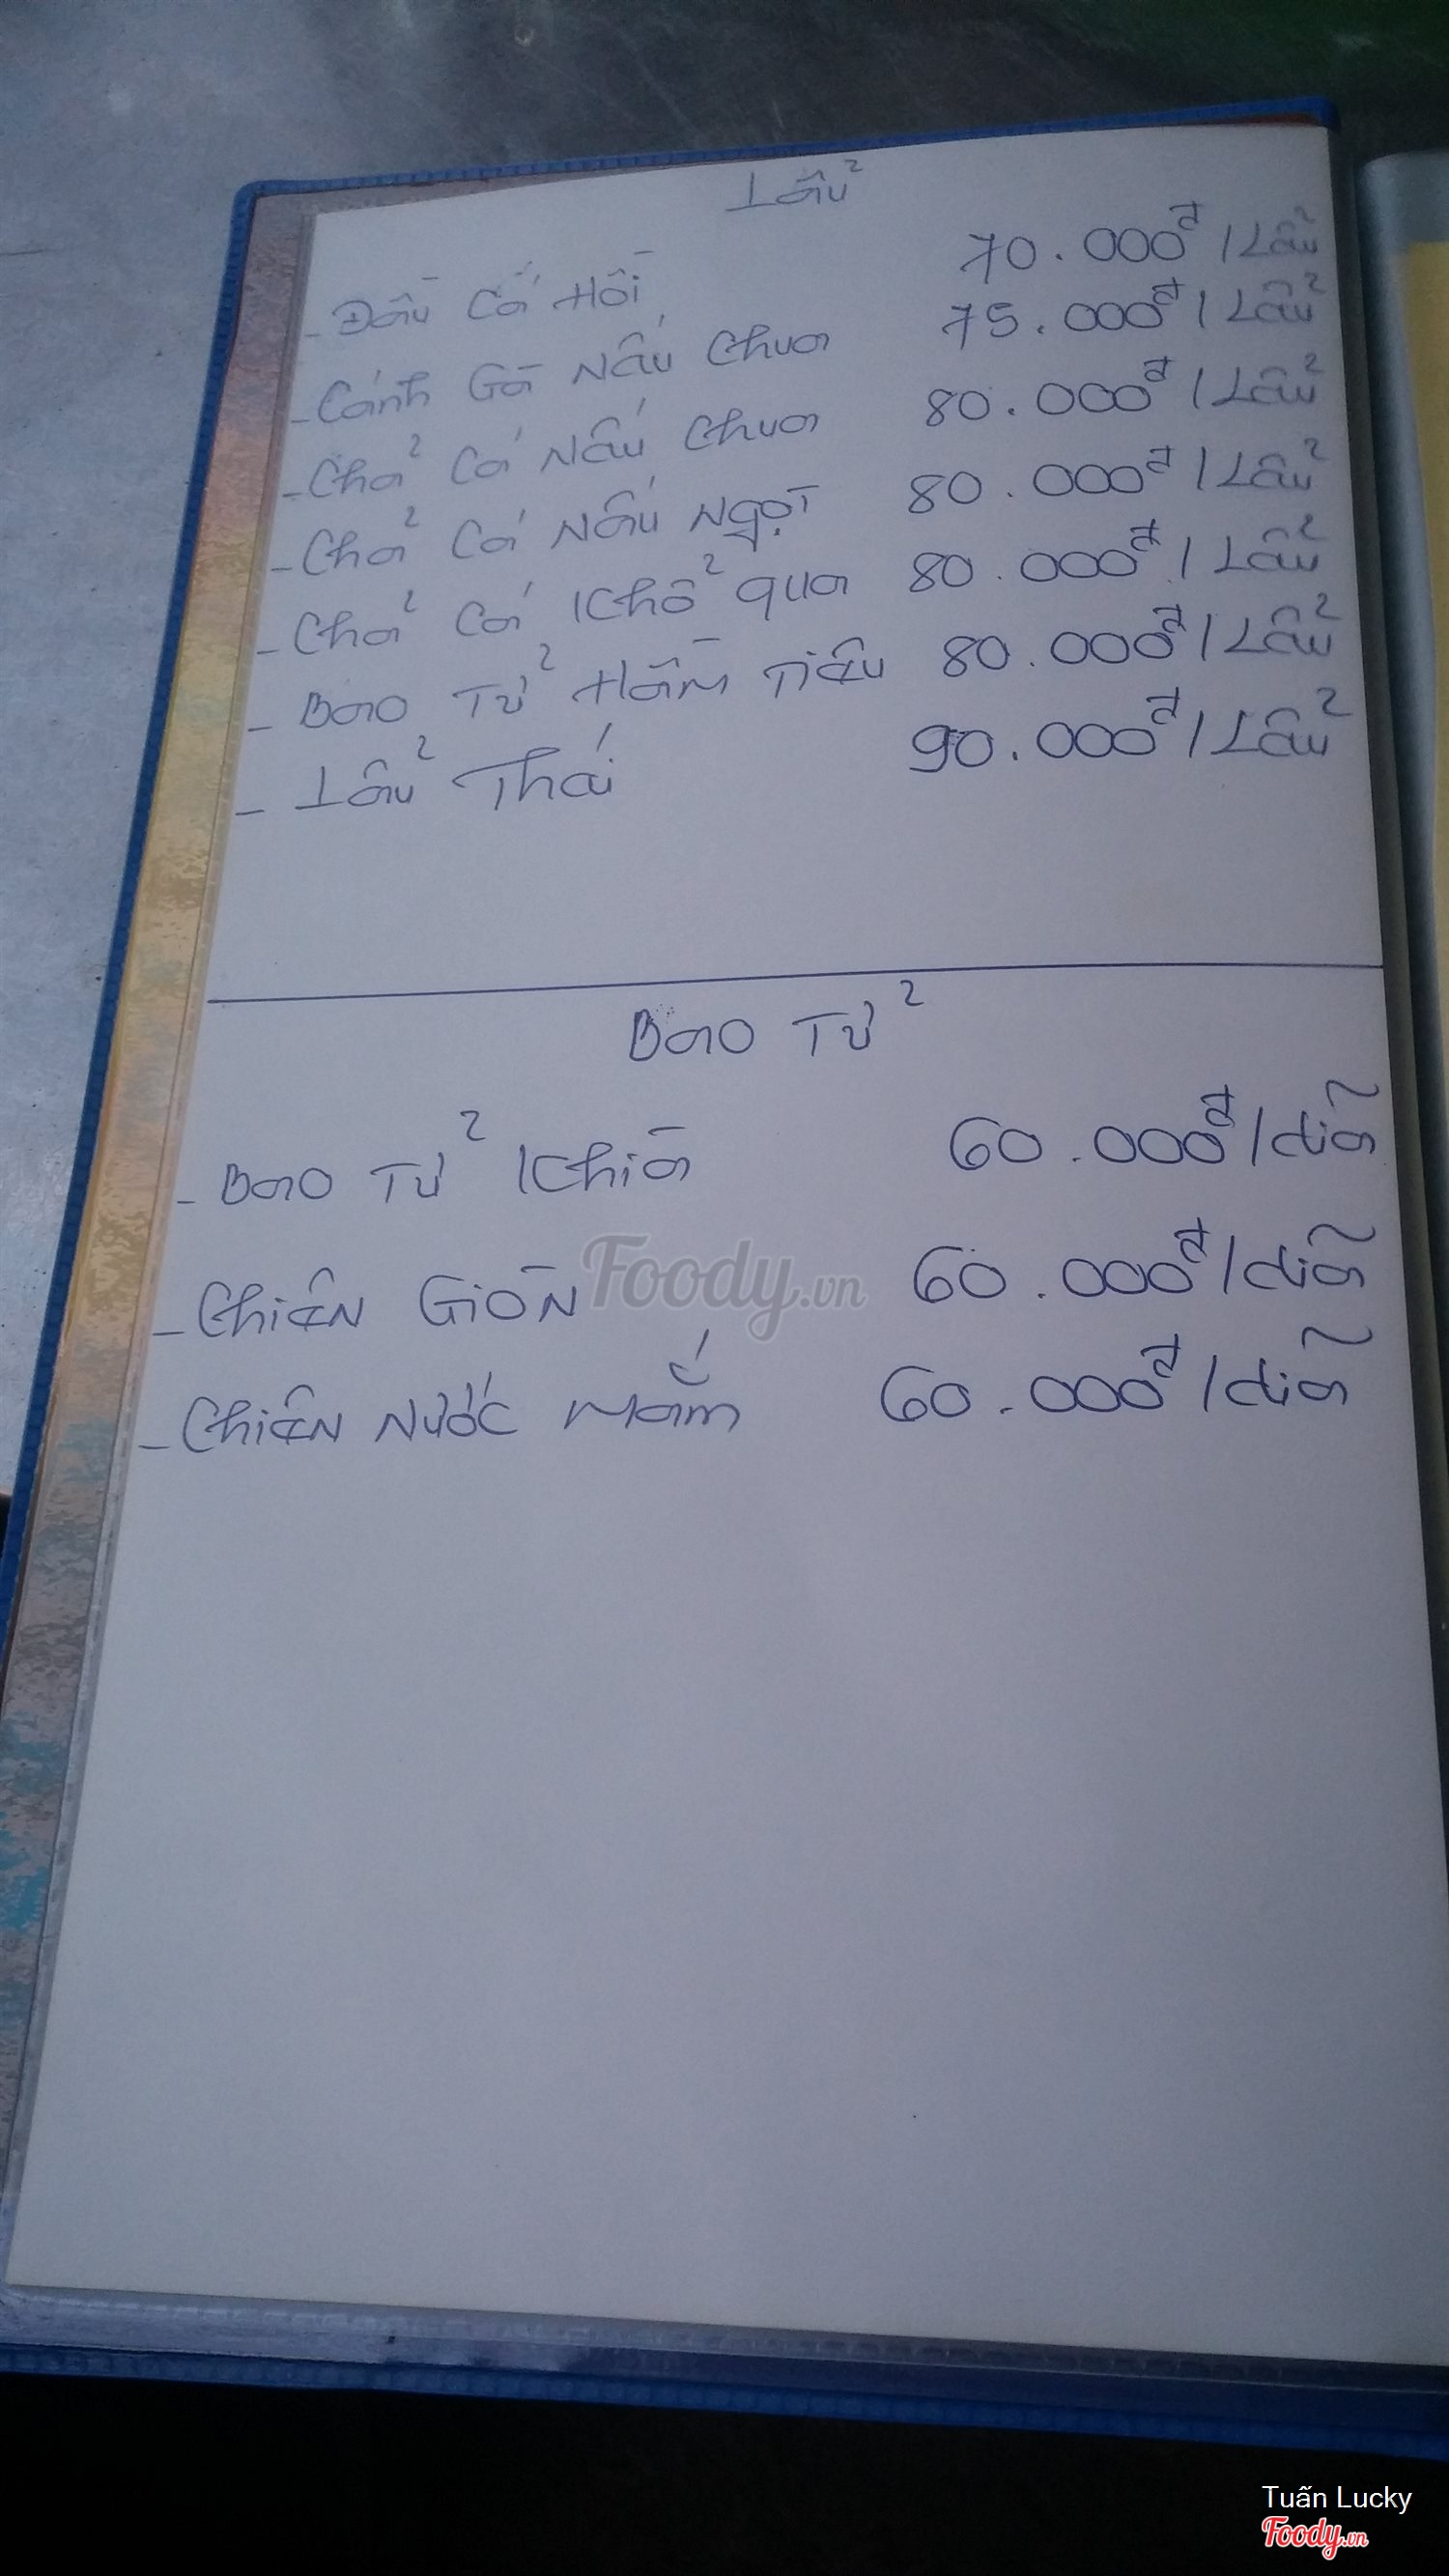 Lẩu
- Đầu Cá Hồi 70.000đ / Lẩu
- Cánh Gà Nấu Chua 75.000đ / Lẩu
- Chả Cá Nấu Chua 80.000đ / Lẩu
- Chả Cá Nấu Ngọt 80.000đ / Lẩu
- Chả Cá Khổ qua 80.000đ / Lẩu
- Bao Tử Hầm Tiêu 80.000đ / Lẩu
- Lẩu Thái 90.000đ / Lẩu
Bao Tử
- Bao Tử Khìa 60.000đ / dĩa
- Chiên Giòn 60.000đ / dĩa
- Chiên Nước Mắm 60.000đ / dĩa
Foody.vn
Tuấn Lucky
Foody.vn